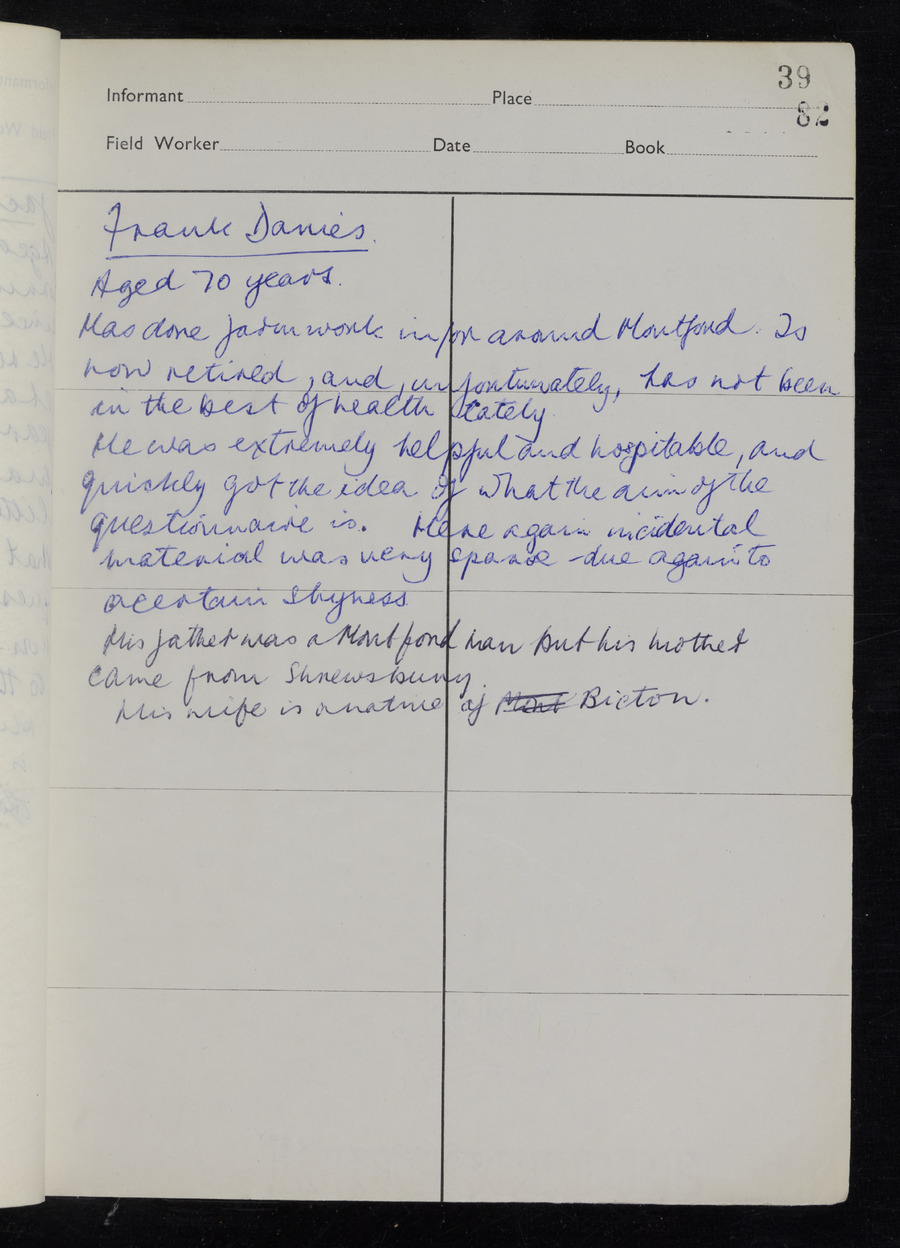 39
Informant Place
82
Field Worker Date Book
Frank Davies.
Aged 70 years.
Has done farmwork in/or around Montford. Is
now retired, and, unfortunately, has not been
in the best of health lately
He was extremely helpful and hospitable, and
quickly got the idea of what the aim of the
questionnaire is. Here again incidental
material was very sparse - due again to
a certain shyness
His father was a Montford man but his mother
came from Shrewsbury.
His wife is a native of Mont Bicton.